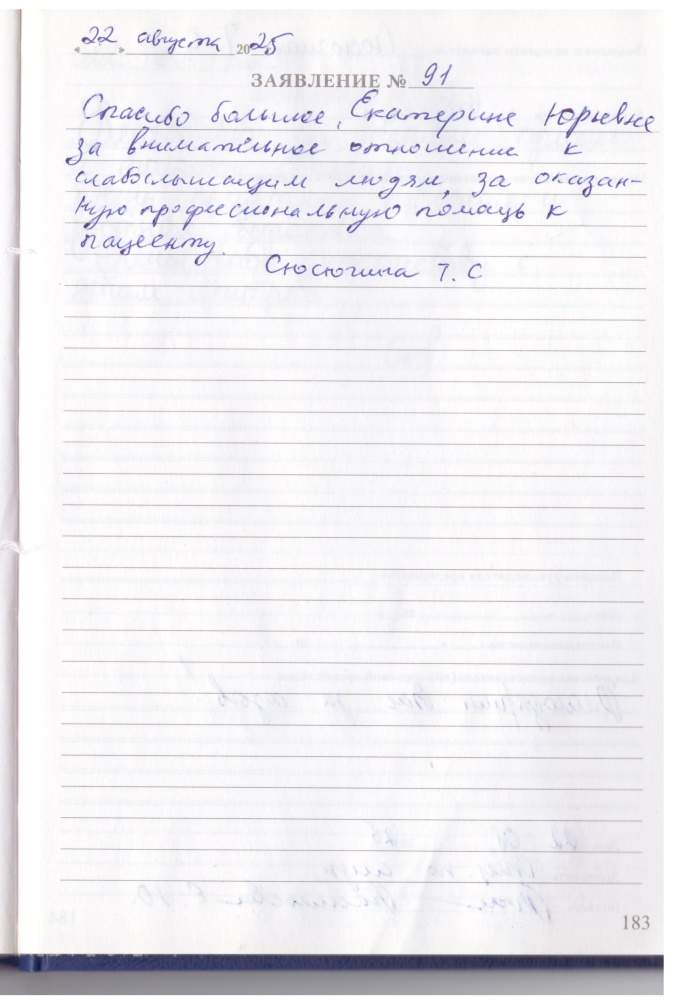 «22» августа 2025
ЗАЯВЛЕНИЕ № 91
Спасибо большое, Екатерине Юрьевне
за внимательное отношение к
слабослышащим людям, за оказан-
ную профессиональную помощь к
пациенту.
Сюсюгина Т. С
183